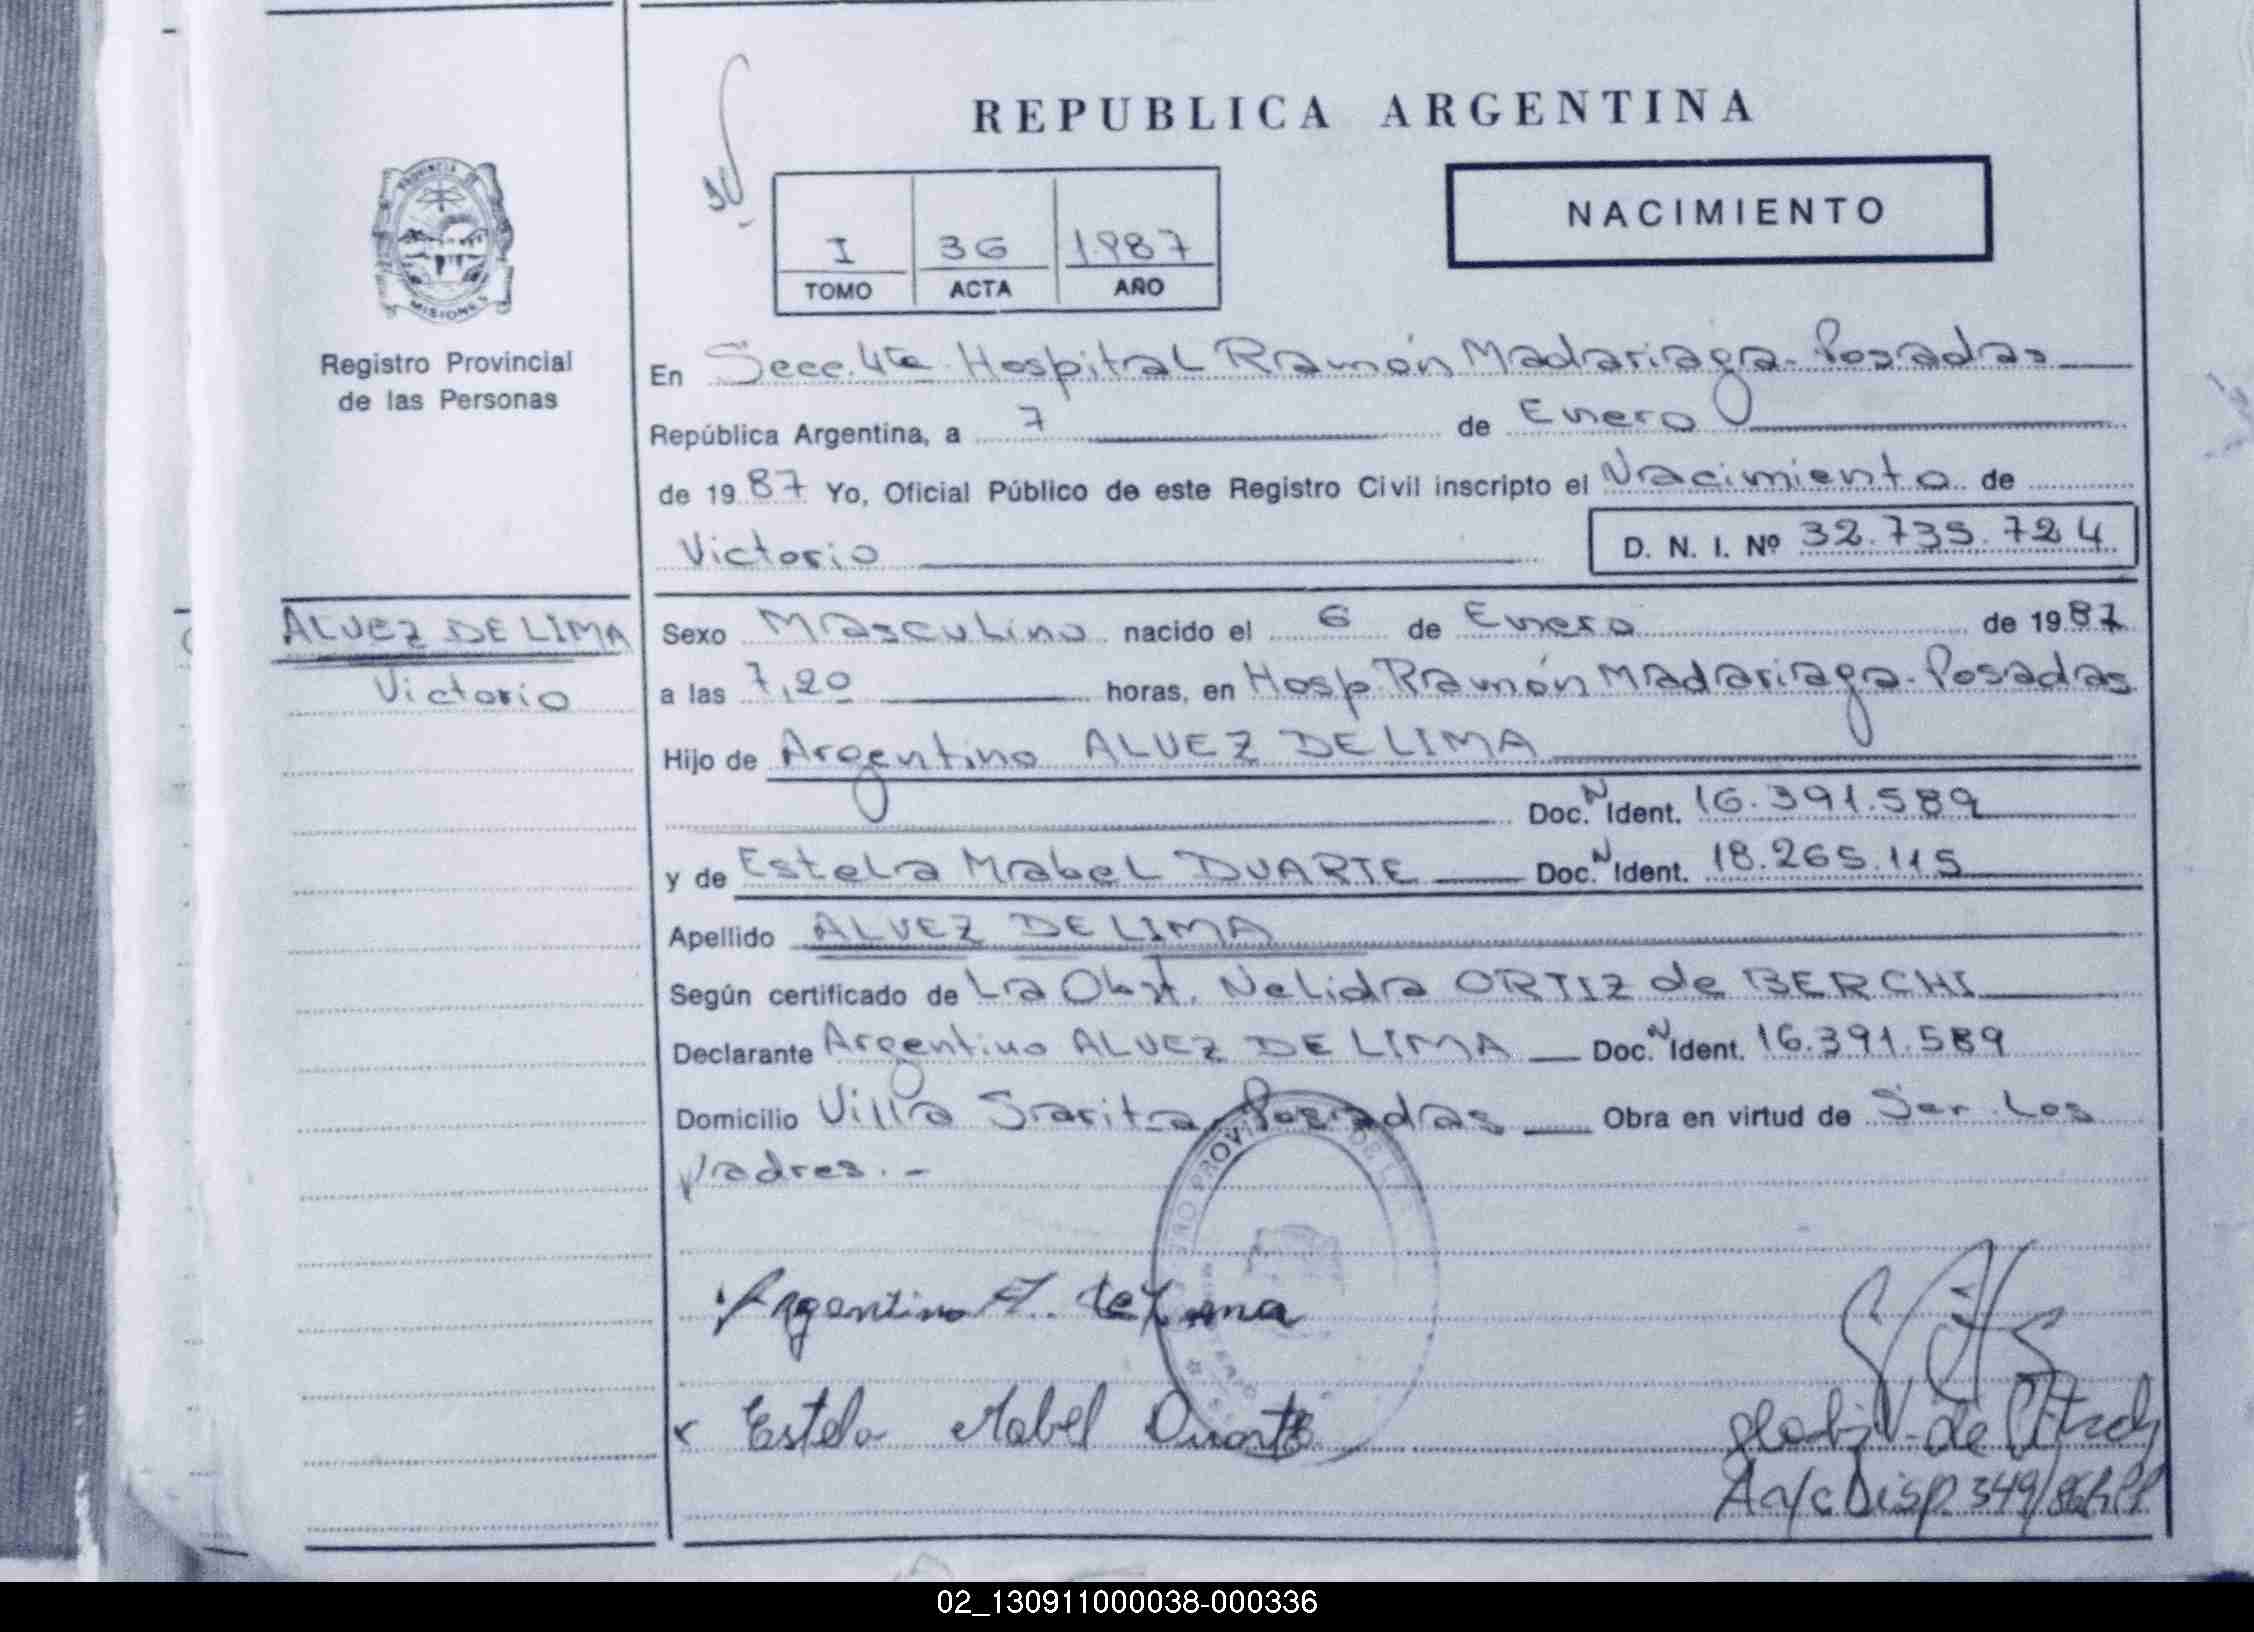 REPUBLICA ARGENTINA
NACIMIENTO
I 36 1.987
TOMO ACTA AÑO
PROVINCIA DE MISIONES
Registro Provincial
de las Personas
En Secc. 4ta. Hospital Ramón Madariaga - Posadas
República Argentina, a 7 de Enero
de 1987 Yo, Oficial Público de este Registro Civil inscripto el Nacimiento de
Victorio D. N. I. Nº 32.735.724
ALVEZ DE LIMA
Victorio
Sexo Masculino nacido el 6 de Enero de 1987
a las 7,20 horas, en Hosp. Ramón Madariaga - Posadas
Hijo de Argentino ALVEZ DE LIMA
Doc. N Ident. 16.391.589
y de Estela Mabel DUARTE Doc. N Ident. 18.265.115
Apellido ALVEZ DE LIMA
Según certificado de La Obst. Nelida ORTIZ de BERCHI
Declarante Argentino ALVEZ DE LIMA Doc. N Ident. 16.391.589
Domicilio Villa Sarita - Posadas Obra en virtud de Ser Los
padres.-
Argentino A. de Lima
Estela Mabel Duarte
A/c Disp. 349/86
02_130911000038-000336